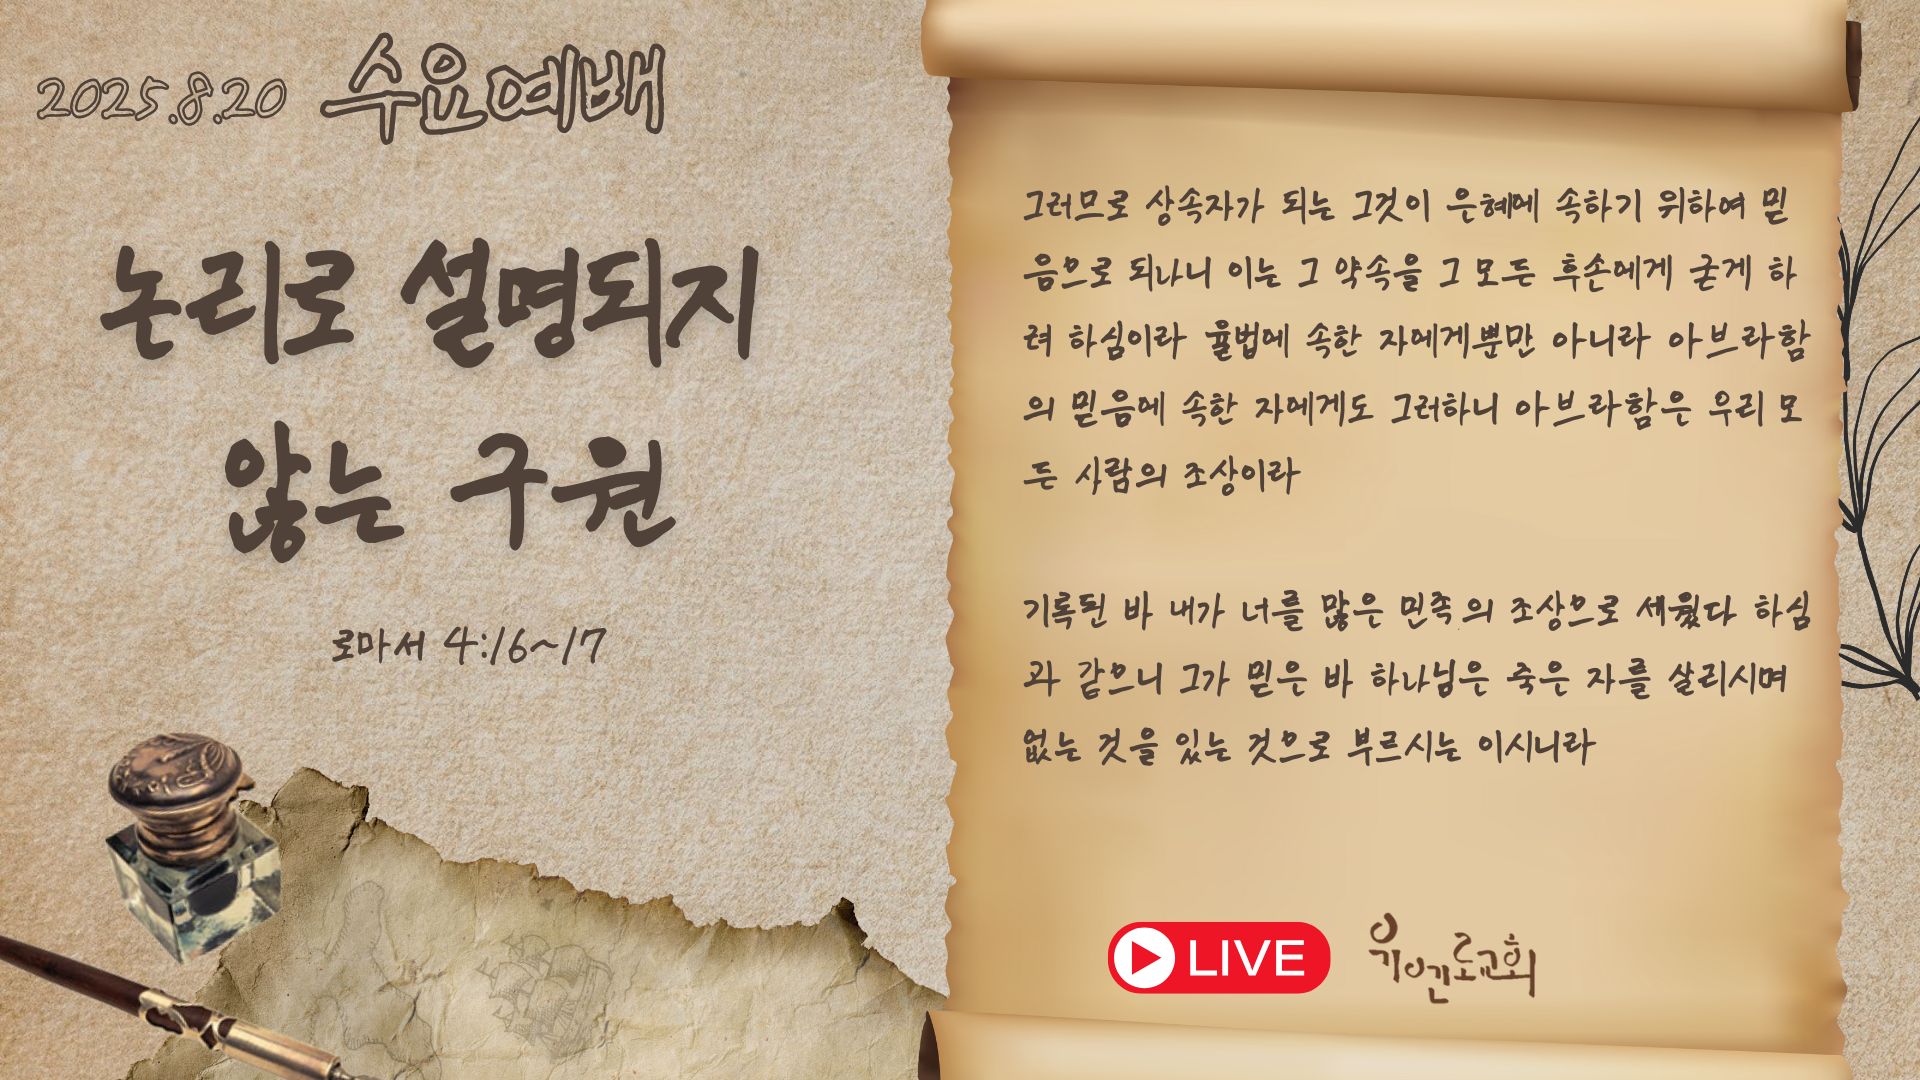 2025.8.20 수요예배
논리로 설명되지
않는 구원
로마서 4:16~17
그러므로 상속자가 되는 그것이 은혜에 속하기 위하여 믿
음으로 되나니 이는 그 약속을 그 모든 후손에게 굳게 하
려 하심이라 율법에 속한 자에게뿐만 아니라 아브라함
의 믿음에 속한 자에게도 그러하니 아브라함은 우리 모
든 사람의 조상이라
기록된 바 내가 너를 많은 민족의 조상으로 세웠다 하심
과 같으니 그가 믿은 바 하나님은 죽은 자를 살리시며
없는 것을 있는 것으로 부르시는 이시니라
LIVE
유엔로교회